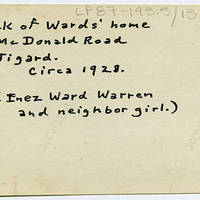 LP87-193.5/13
k of Wards' home
McDonald Road
Tigard.
Circa 1928.
Enez Ward Warren
and neighbor girl.)